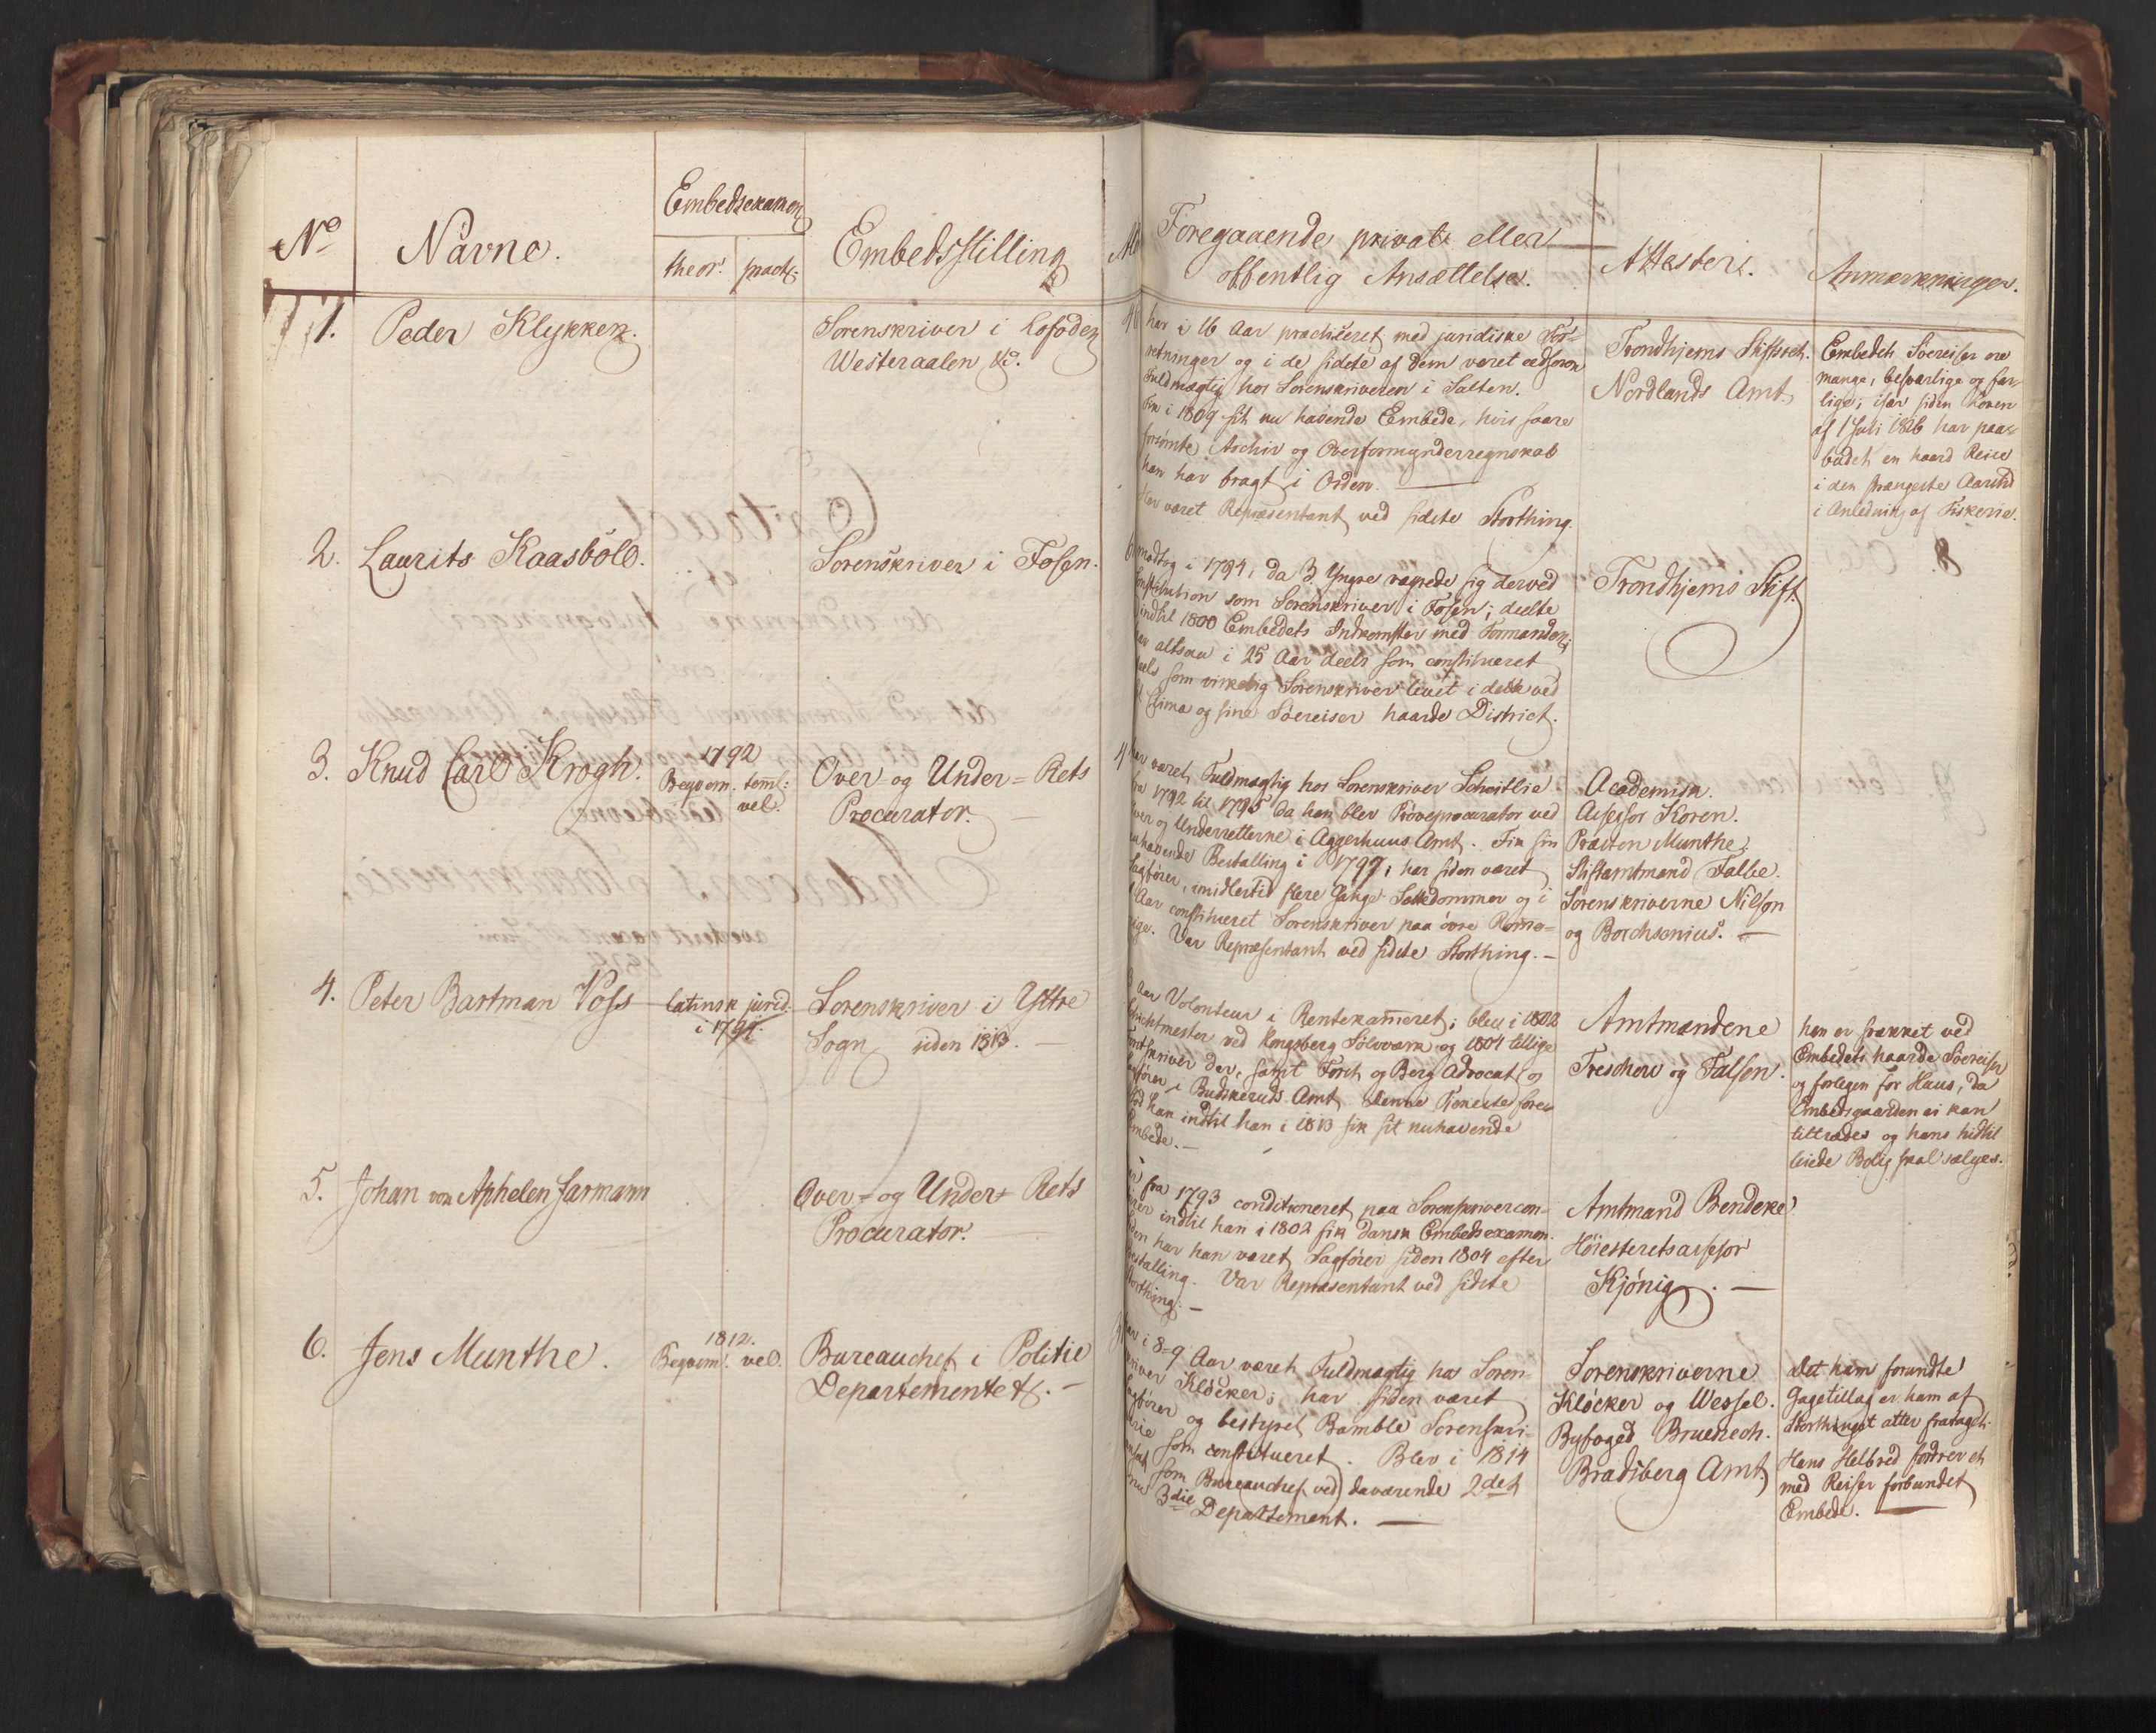 No
Navne.
Embedsexamen
theor: pract:
Embedsstilling
Foregaaende privat eller
offentlig Ansættelse.
Attester.
Anmærkninger.
1. Peder Klykken.
Sorenskriver i Lofoden
Westeraalen &c.
har i 16 Aar practiceret med juridiske For-
retninger og i de sidste af dem været edsvoren
Fuldmægtig hos Sorenskriveren i Salten.
Fik i 1809 sit nu havende Embede, hvis saare
forsømte Archiv og Overformynderregnskab
han har bragt i Orden.
Har været Repræsentant ved sidste Storthing.
Trondhjems Stift
Nordlands Amt.
Embedets Søereiser ere
mange, besværlige og far-
lige; især siden Loven
af 1 Juli 1816 har paa-
budet en haard Reise
i den strængeste Aarstid
i Anledning af Fiskerie.
2. Laurits Kaasbøll.
Sorenskriver i Fosen.
modtog i 1794, da 3 Yngre vægrede sig derved
Constitution som Sorenskriver i Fosen; deelte
indtil 1800 Embedets Indkomster med Formanden;
har altsaa i 25 Aar deels som constitueret
deels som virkelig Sorenskriver levet i dette ved
sit Clima og sine Søereiser haarde District.
Trondhjems Stift
3. Knud Carl Krogh.
1792
Beqvem. teml:
vel.
Over- og Under-Rets
Procurator.
har været Fuldmægtig hos Sorenskriver Scheitlie
fra 1792 til 1795 da han blev Prøveprocurator ved
Over og Underretterne i Aggerhuus Amt. Fik sin
nuhavende Bestalling i 1797, har siden været
Sagfører, imidlertid flere Gange Settedommer og i
Aar constitueret Sorenskriver paa øvre Rome-
rige. Var Repræsentant ved sidste Storthing.-
Academisk
Assessor Koren.
Præsten Munthe,
Stiftamtmand Falbe.
Sorenskriverne Nilson
og Borchsenius.
4. Peter Bartman Voss
latinsk jurid:
i 1797.
Sorenskriver i Yttre
Sogn siden 1813.
3 Aar Volonteur i Rentekammeret; blev i 1802
Schichtmester ved Kongsberg Sølvværk og 1804 tillige
Forstskriver der, samt Forst og Berg Advocat og
Sagfører i Buskeruds Amt. denne Tjeneste fore-
stod han indtil han i 1813 fik sit nuhavende
Embede.-
Amtmændene
Treschow og Falsen.
han er svækket ved
Embedets haarde Søereiser
og forlegen for Huus, da
Embedsgaarden ei kan
tiltrædes og hans hidtil
leiede Bolig skal sælges.
5. Johan von Aphelen Jarmann
Over- og Under-Rets
Procurator.
fra 1793 conditioneret paa Sorenskrivercon-
toirer indtil han i 1802 fik dansk Embedsexamen.
Siden har han været Sagfører siden 1804 efter
Bestalling. Var Repræsentant ved sidste
Storthing.-
Amtmand Bendeke
Høiesteretsassessor
Kjønig.
6. Jens Munthe.
1812.
Beqvem. vel.
Bureauchef i Politie
Departementet.
har i 8-9 Aar været Fuldmægtig hos Soren-
skriver Kløcker; har siden været
Sagfører og bestyret Bamble Sorenskri-
verie som constitueret. Blev i 1814
ansat som Bureauchef ved daværende 2det
nu 3die Departement.
Sorenskriverne
Kløcker og Wessel.
Byfoged Bruenech.
Bradsberg Amt.
Det ham forundte
Gagetillæg er ham af
Storthinget atter fratagen.
Hans Helbred fordrer et
med Reiser forbundet
Embede.